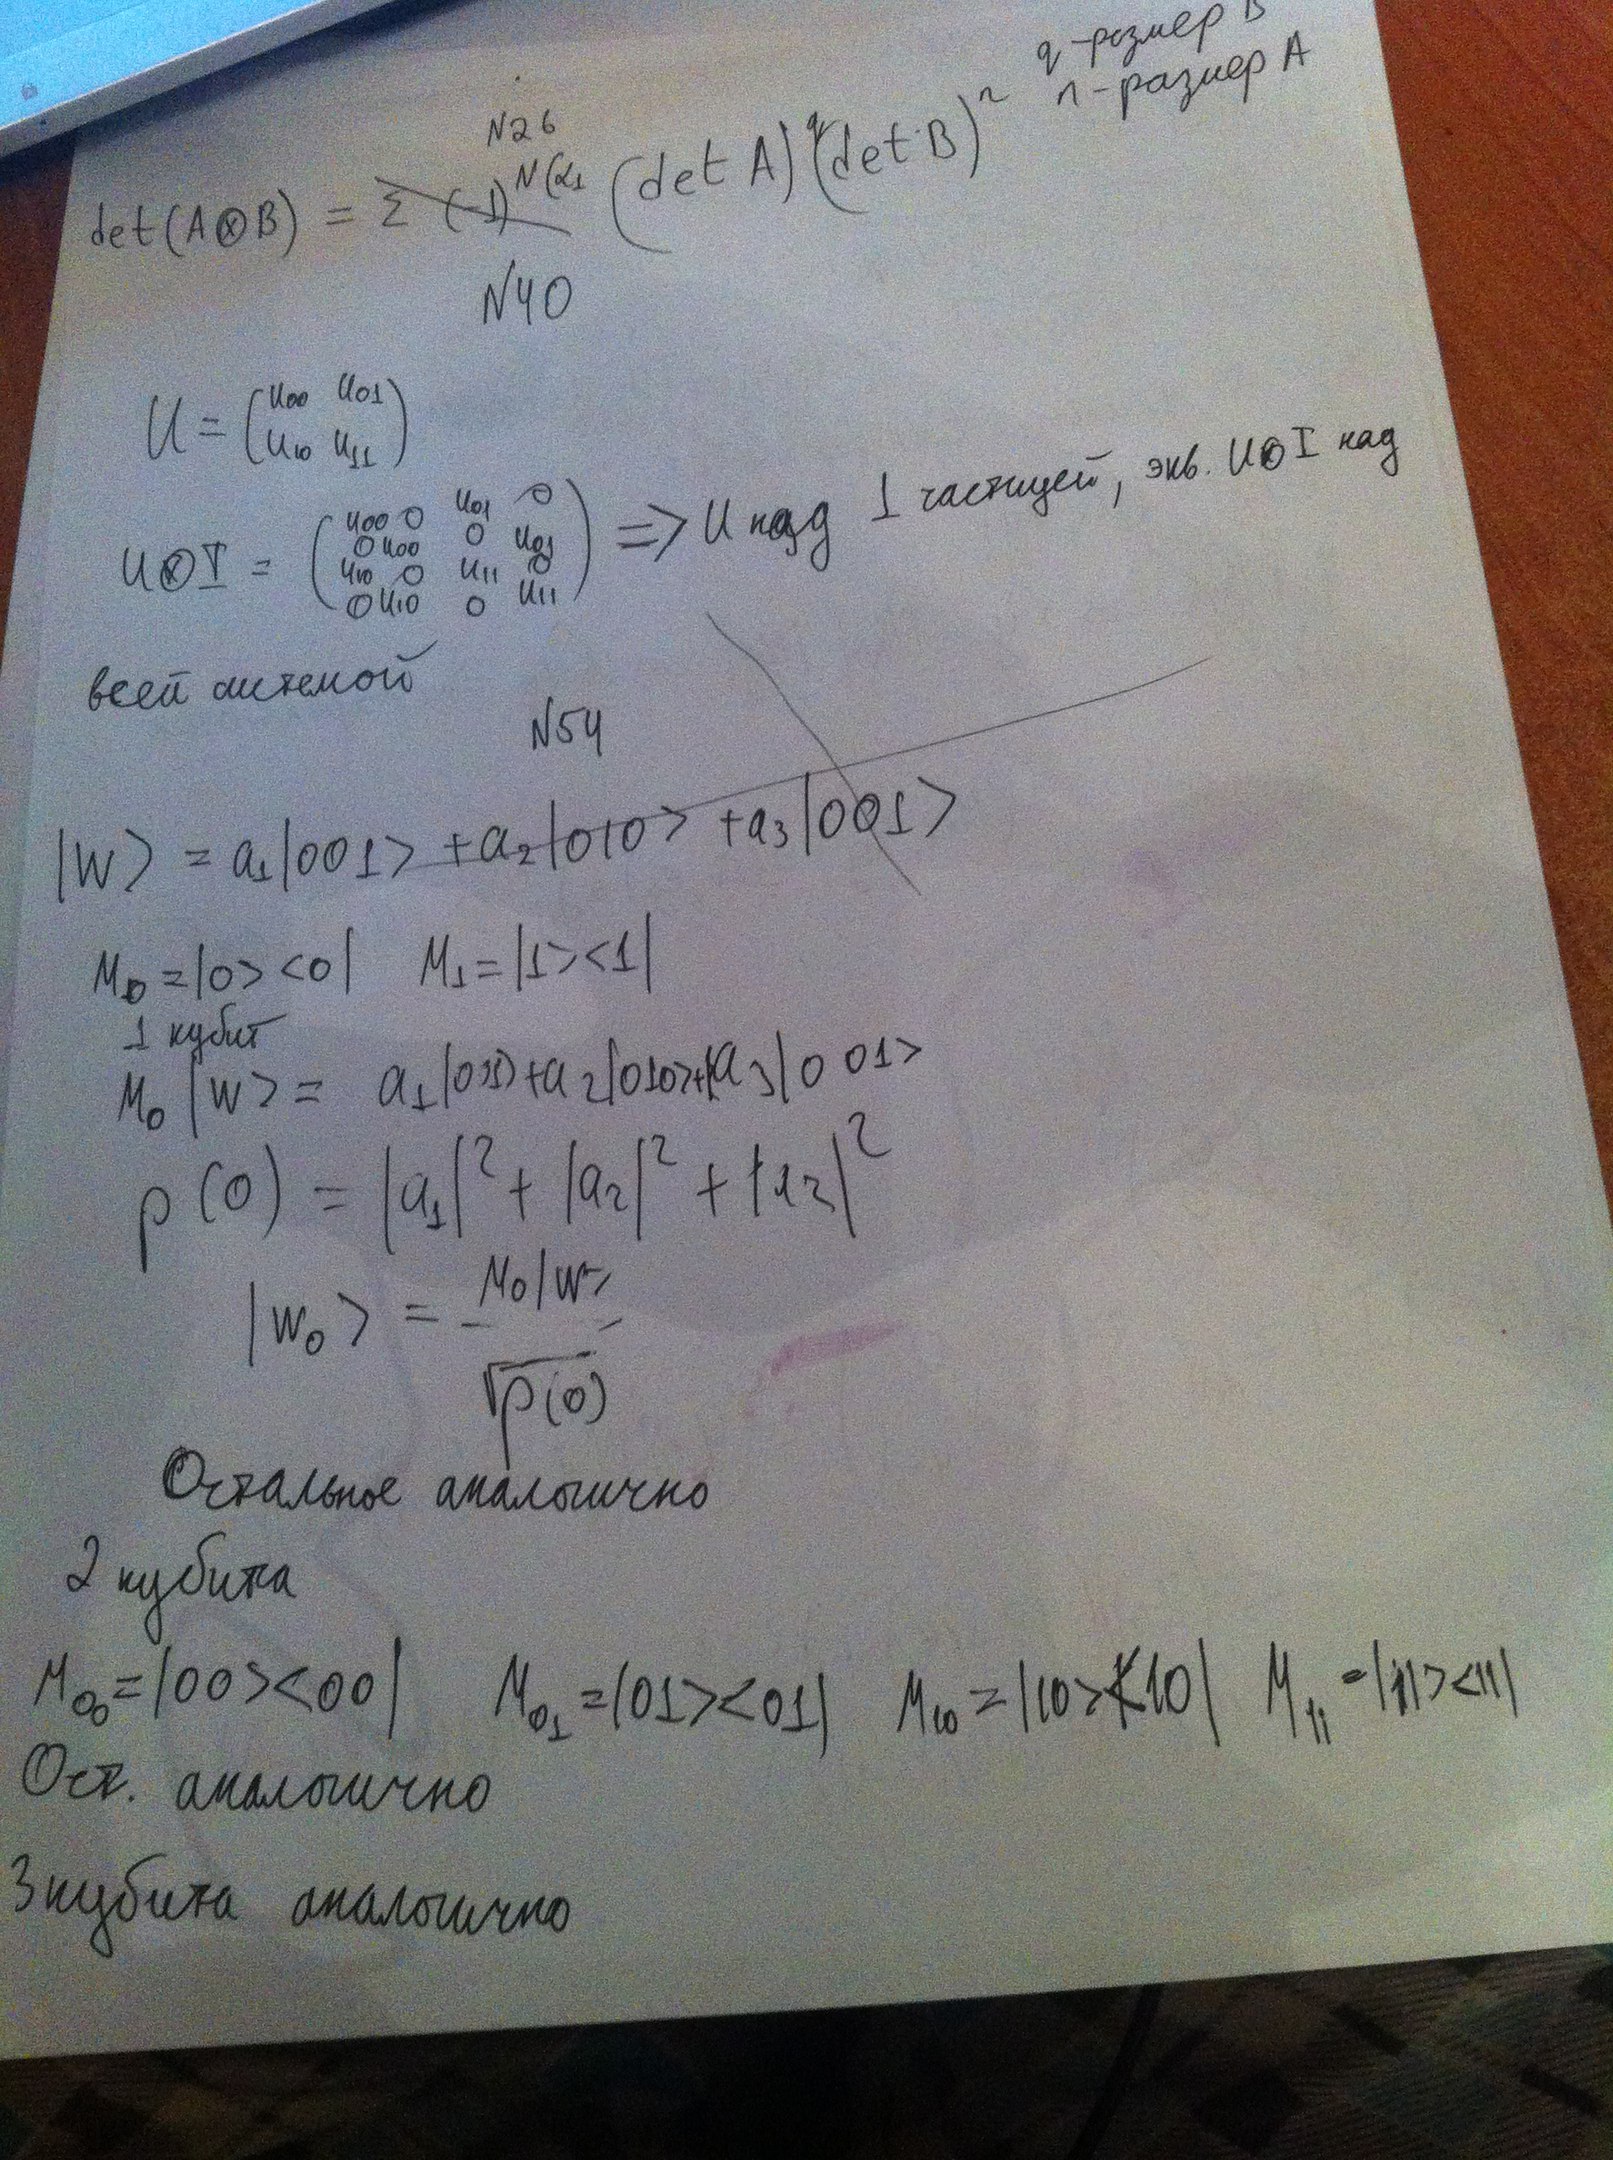 q - размер B
n - размер A
N26
det(A⊗B) = Σ (-1)^N(α₁ (det A)^q (det B)^n
N40
U = (u₀₀ u₀₁
u₁₀ u₁₁)
U⊗I = (u₀₀ 0 u₀₁ 0
0 u₀₀ 0 u₀₁
u₁₀ 0 u₁₁ 0
0 u₁₀ 0 u₁₁) => U над 1 частицей, экв. U⊗I над
всей системой
N54
|W> = a₁|001> + a₂|010> + a₃|001>
M₀ = |0><0| M₁ = |1><1|
1 кубит
M₀|W> = a₁|001> + a₂|010> + a₃|001>
p(0) = |a₁|² + |a₂|² + |a₃|²
|W₀> = M₀|W>
√p(0)
Остальное аналогично
2 кубита
M₀₀ = |00><00| M₀₁ = |01><01| M₁₀ = |10><10| M₁₁ = |11><11|
Ост. аналогично
3 кубита аналогично